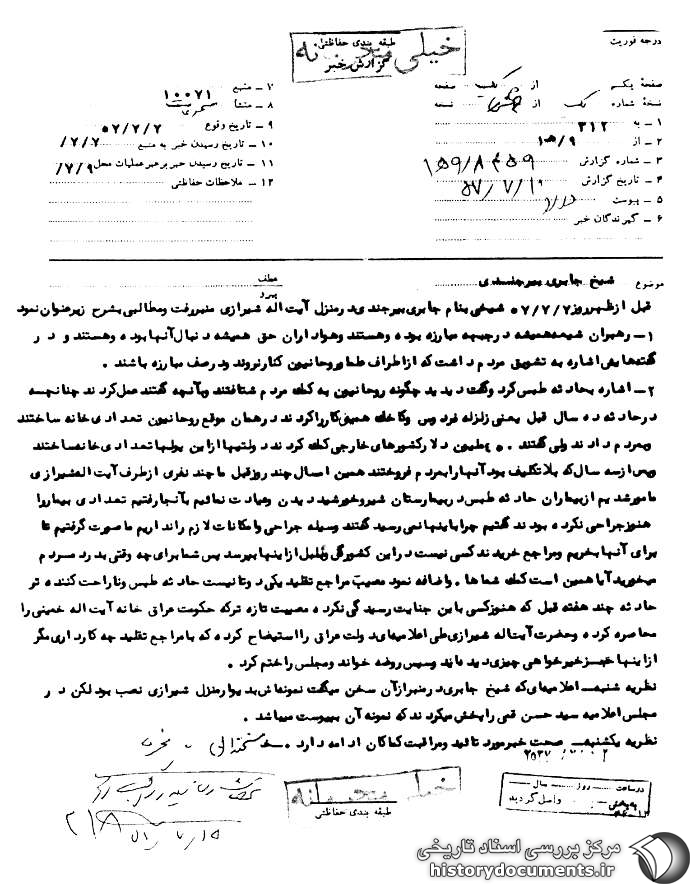 درجه فوریت
طبقه بندی حفاظتی
خیلی محرمانه
گزارش خبر
صفحهٔ یکم از یک صفحه
نسخهٔ شماره یک از نسخه
۱ـ به ۳۱۲
۲ـ از ۱۵ه۹
۳ـ شماره گزارش ۱۵۹/۸۴۵۹
۴ـ تاریخ گزارش ۵۷/۷/۱۰
۵ـ پیوست دارد
۶ـ گیرندگان خبر
۷ـ منبع ۱۰۰۷۱
۸ـ منشأ
۹ـ تاریخ وقوع ۵۷/۷/۷
۱۰ـ تاریخ رسیدن خبر به منبع ۷/۷/
۱۱ـ تاریخ رسیدن خبر برهبر عملیات محل ۷/۹/
۱۲ـ ملاحظات حفاظتی
موضوع شیخ جابری بیرجندی
عطف
پیرو
قبل ازظهرروز ۵۷/۷/۷ شیخی بنام جابری بیرجندی درمنزل آیت اله شیرازی منبررفت ومطالبی بشرح زیرعنوان نمود
۱ـ رهبران شیعه همیشه درجبهه مبارزه بوده وهستند وهواداران حق همیشه دنبال آنها بوده وهستند و در
گفته‌هایش اشاره به تشویق مردم داشت که ازاطراف علما وروحانیون کنارنروند ودرصف مبارزه باشند .
۲ـ اشاره بحادثه طبس کرد وگفت دیدید چگونه روحانیون به کمک مردم شتافتند وبآنچه گفتند عمل کردند چنانچه
درحادثه ده سال قبل یعنی زلزله فردوس وکاخک همین کاررا کردند درهمان موقع روحانیون تعدادی خانه ساختند
وبمردم دادند ولی گفتند ۵۰۰ میلیون دلار کشورهای خارجی کمک کردند دولتیها ازاین پولها تعدادی خانه ساختند
وپس ازسه سال که بلاتکلیف بود آنها رابمردم فروختند همین امسال چند روزقبل ما چند نفری ازطرف آیت اله شیرازی
مامورشدیم ازبیماران حادثه طبس دربیمارستان شیروخورشید دیدن وعیادت نمائیم بآنجا رفتیم تعدادی بیماروا
هنوزجراحی نکرده بودند گفتیم چرا باینها نمی رسید گفتند وسیله جراحی وامکانات لازم راندا‌ریم ما صورت گرفتیم تا
برای آنها بخریم ومراجع خریدند کسی نیست دراین کشورگل وبلبل ازاینها بپرسد پس شما برای چه وقتی بدرد مردم
میخورید آیا همین است کمک شما ها . واضافه نمود مصیبت مراجع تقلید یکی دوتا نیست حادثه طبس وناراحت کننده تر
حادثه چند هفته قبل که هنوزکسی باین جنایت رسیدگی نکرده مصیبت تازه ترکه حکومت عراق خانه آیت اله خمینی را
محاصره کرده وحضرت آیت اله شیرازی طی اعلامیه‌ای دولت عراق را استیضاح کرده که بامراجع تقلید چه کار داری مگر
ازاینها جزخیرخواهی چیزی دیده‌اند وسپس روضه خواند ومجلس راختم کرد .
نظریه شنبه ـ اعلامیه‌ای که شیخ جابری درمنبرازآن سخن میگفت نمونه‌اش بدیوارمنزل شیرازی نصب بود لکن در
مجلس اعلامیه سید حسن قمی را پخش میکردند که نمونه آن بپیوست میباشد .
نظریه یکشنبه ـ صحت خبرمورد تائید ومراقبت کماکان ادامه دارد .
خیلی محرمانه
طبقه بندی حفاظتی
در ساعت روز سال
واصل گردید
مرکز بررسی اسناد تاریخی
historydocuments.ir